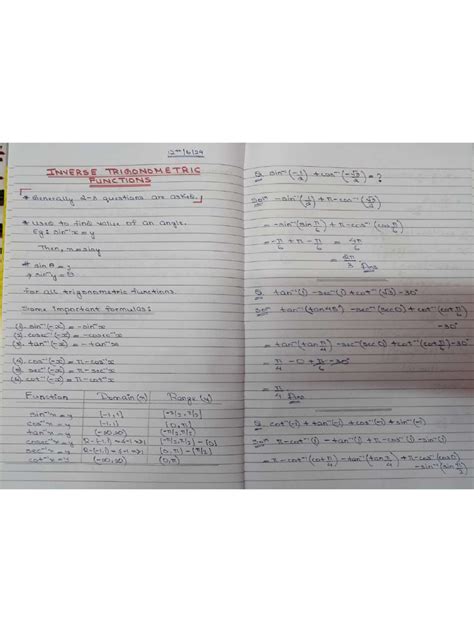 12th/6/24
INVERSE TRIGONOMETRIC
FUNCTIONS
* Generally 2-3 questions are asked.
* Used to find value of an angle.
Eg: sin⁻¹x = y
Then, x = siny
# sinθ = y
→ sin⁻¹y = θ
for all trigonometric functions.
Some important formulas:
(1). sin⁻¹(-x) = -sin⁻¹x
(2). cosec⁻¹(-x) = -cosec⁻¹x
(3). tan⁻¹(-x) = -tan⁻¹x
(4). cos⁻¹(-x) = π-cos⁻¹x
(5). sec⁻¹(-x) = π-sec⁻¹x
(6). cot⁻¹(-x) = π-cot⁻¹x
Function Domain(x) Range(y)
sin⁻¹x=y [-1,1] [-π/2, π/2]
cos⁻¹x=y [-1,1] [0,π]
tan⁻¹x=y (-∞,∞) (-π/2, π/2)
cosec⁻¹x=y R-(-1,1) [-π/2, π/2]-{0}
sec⁻¹x=y R-(-1,1) [0,π]-{π/2}
cot⁻¹x=y (-∞,∞) (0,π)
Q. sin⁻¹(-1/2) + cos⁻¹(-√3/2) = ?
Solⁿ -sin⁻¹(1/2) + π-cos⁻¹(√3/2)
= -sin⁻¹(sin π/6) + π-cos⁻¹(cos π/6)
= -π/6 + π - π/6 = 4π/6
= 2π/3 Ans
Q. tan⁻¹(1) - sec⁻¹(1) + cot⁻¹(√3) - 30°
Solⁿ tan⁻¹(tan45°) - sec⁻¹(sec0) + cot⁻¹(cot π/6)
-30°
= tan⁻¹(tan π/4) - sec⁻¹(sec0) + cot⁻¹(cot π/6) - 30°
= π/4 - 0 + π/6 - 30°
= π/4 Ans
Q. cot⁻¹(-1) + tan⁻¹(-1) + cos⁻¹(-1) + sin⁻¹(-1)
Solⁿ π-cot⁻¹(1) - tan⁻¹(1) + π-cos⁻¹(1) - sin⁻¹(1)
= π-cot⁻¹(cot π/4) - tan⁻¹(tan π/4) + π-cos⁻¹(cos0)
-sin⁻¹(sin π/2)